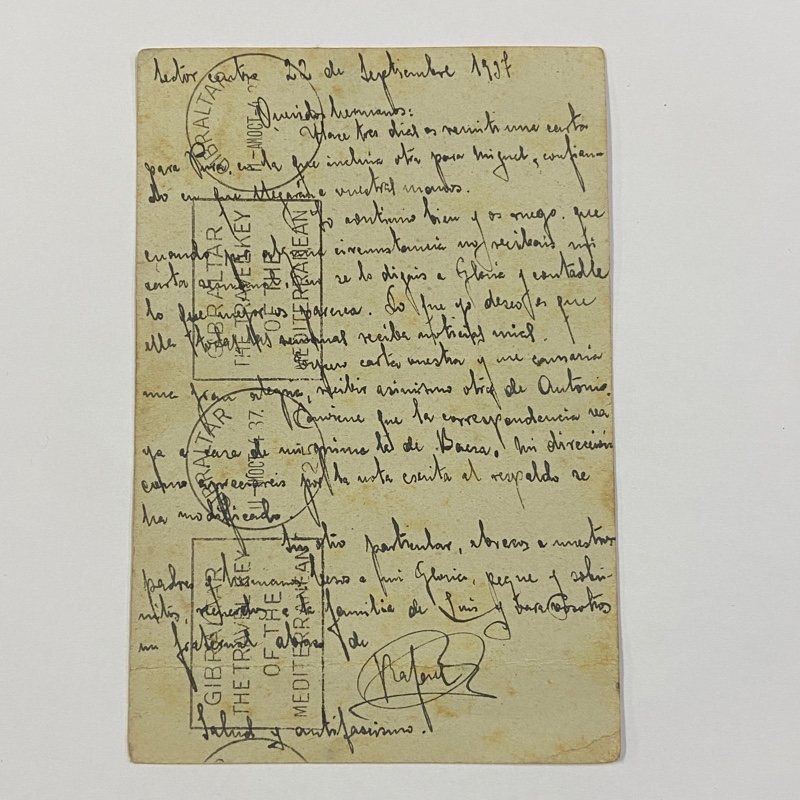 Sector centro 22 de Septiembre 1937
Queridos hermanos:
Hace tres dias os remiti una carta
para Pura, en la que incluia otra para Miguel, confian-
do en que llegarán a vuestras manos.
Yo continuo bien y os ruego que
cuando por alguna circunstancia no recibais mi
carta semanal, se lo digais a Gloria y contadle
lo que mejor os parezca. Lo que yo deseo es que
ella todas las semanas reciba noticias mias.
Espero carta vuestra y me causaria
una gran alegria, recibir asimismo otra de Antonio.
Conviene que la correspondencia vea
ya a casa de mi prima la de Baeza. Mi direccion
como apreciareis por la nota escrita al respaldo se
ha modificado.
Sin otro particular, abrazos a nuestros
padres y hermanos, besos a mi Gloria, peque y sobri-
nitos, recuerdos a la familia de Luis y para vosotros
un fraternal abrazo de
Rafael
Salud y antifascismo.
GIBRALTAR
11-AM OCT 4 37
GIBRALTAR
THE TRAVEL KEY
OF THE
MEDITERRANEAN
GIBRALTAR
11-AM OCT 4 37
GIBRALTAR
THE TRAVEL KEY
OF THE
MEDITERRANEAN